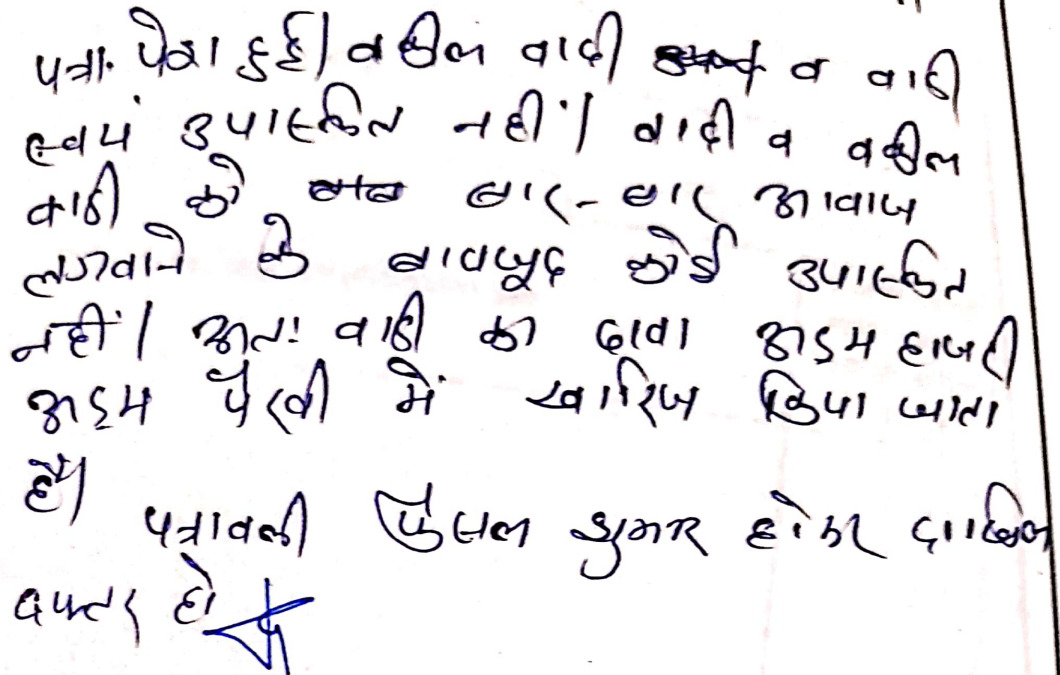 पत्रा. पेश हुई। वकील वादी व वादी
स्वयं उपास्थित नहीं। वादी व वकील
वादी को बार-बार आवाज
लगवाने के बावजूद कोई उपास्थित
नहीं। अतः वादी का दावा अदम हाजरी
अदम पैरवी में खारिज किया जाता
है।
पत्रावली फैसल शुमार होकर दाखिल
दफ्तर हो